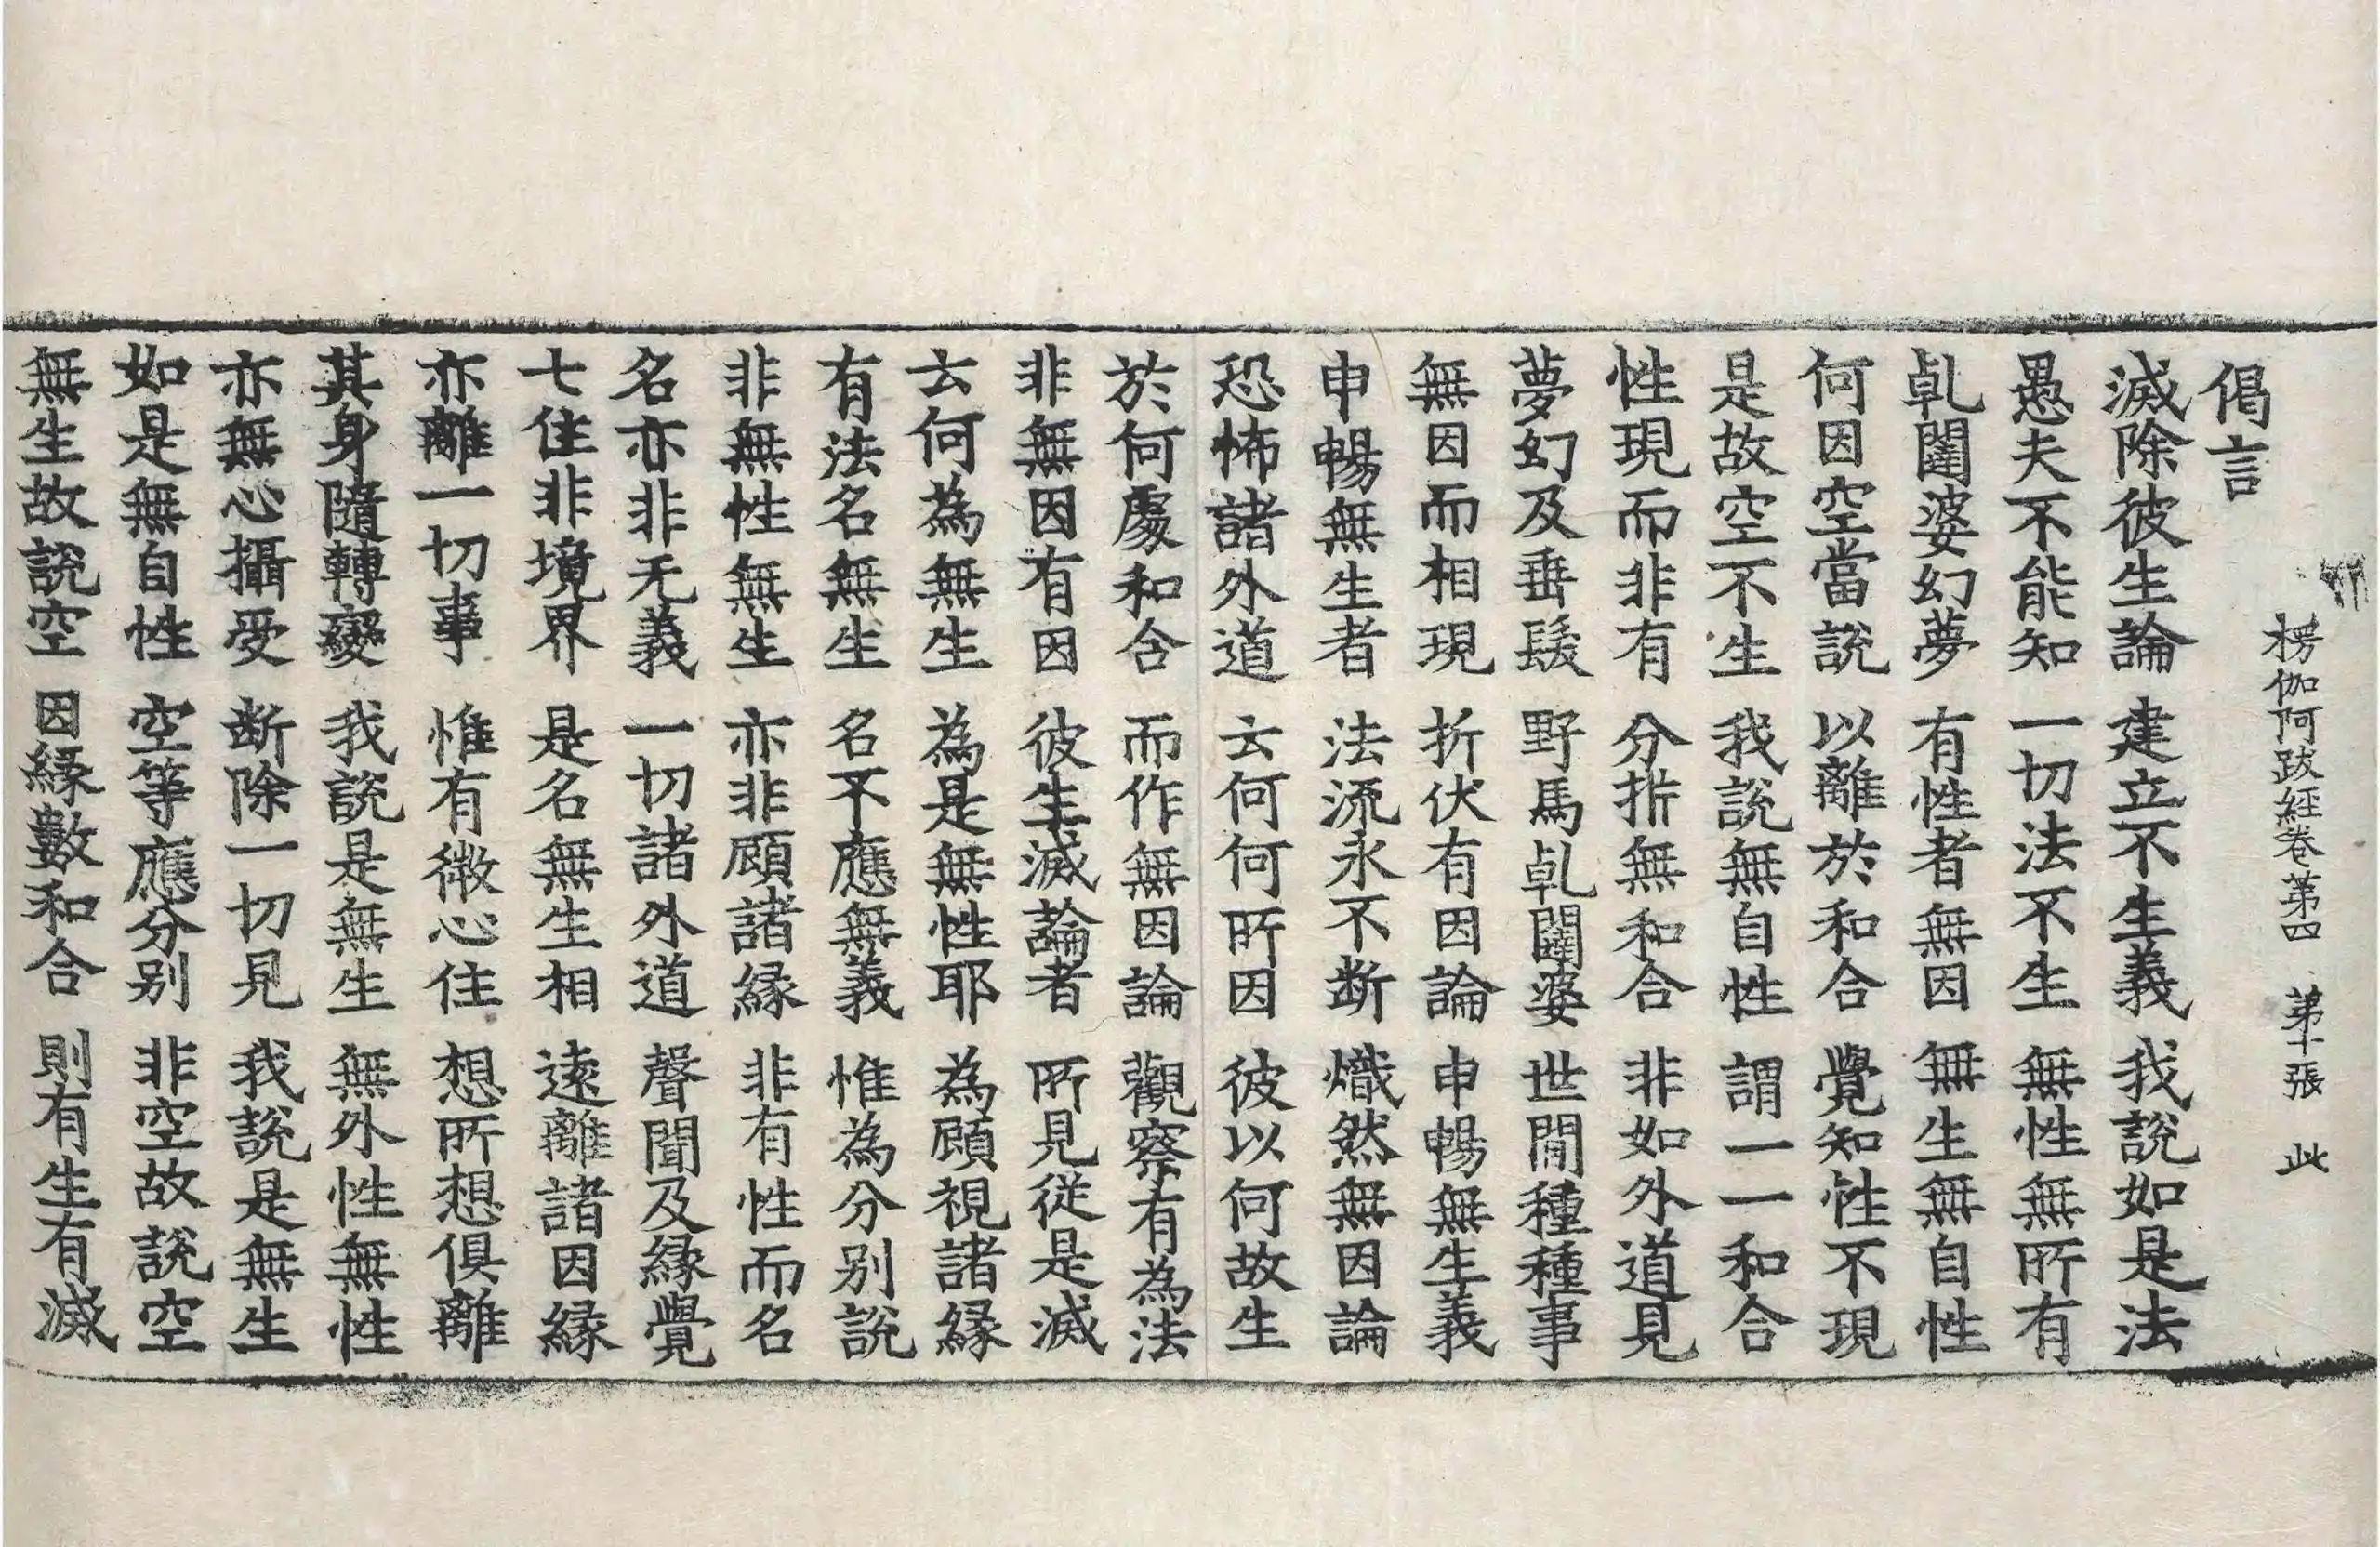 楞伽阿跋經卷第四 第十張 此
偈言
滅除彼生論 建立不生義 我說如是法
愚夫不能知 一切法不生 無性無所有
乹闥婆幻夢 有性者無因 無生無自性
何因空當說 以離於和合 覺知性不現
是故空不生 我說無自性 謂一一和合
性現而非有 分折無和合 非如外道見
夢幻及垂髮 野馬乹闥婆 世閒種種事
無因而相現 折伏有因論 申暢無生義
申暢無生者 法流永不断 熾然無因論
恐怖諸外道 云何何所因 彼以何故生
於何處和合 而作無因論 觀察有為法
非無因有因 彼生滅論者 所見從是滅
云何為無生 為是無性耶 為顧視諸縁
有法名無生 名不應無義 惟為分别說
非無性無生 亦非顧諸縁 非有性而名
名亦非无義 一切諸外道 聲聞及縁覺
七住非境界 是名無生相 遠離諸因縁
亦離一切事 惟有微心住 想所想俱離
其身隨轉變 我說是無生 無外性無性
亦無心攝受 断除一切見 我說是無生
如是無自性 空等應分别 非空故說空
無生故說空 因縁數和合 則有生有滅